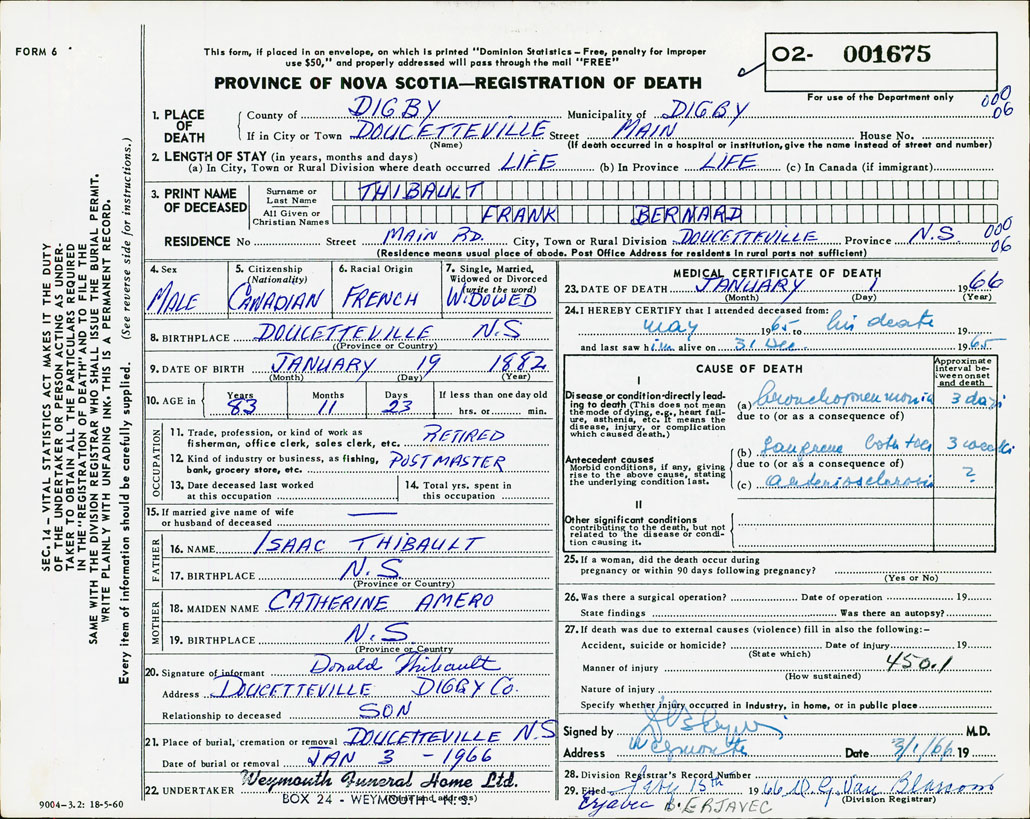 FORM 6
This form, if placed in an envelope, on which is printed "Dominion Statistics – Free, penalty for improper
use $50," and properly addressed will pass through the mail "FREE"
O2- 001675
For use of the Department only
PROVINCE OF NOVA SCOTIA—REGISTRATION OF DEATH
000
06
1. PLACE OF DEATH
County of DIGBY Municipality of DIGBY
If in City or Town DOUCETTEVILLE Street MAIN House No.
(Name) (If death occurred in a hospital or institution, give the name instead of street and number)
2. LENGTH OF STAY (in years, months and days)
(a) In City, Town or Rural Division where death occurred LIFE (b) In Province LIFE (c) In Canada (if immigrant)
3. PRINT NAME OF DECEASED
Surname or Last Name THIBAULT
All Given or Christian Names FRANK BERNARD
RESIDENCE No Street MAIN RD. City, Town or Rural Division DOUCETTEVILLE Province N.S. 000
06
(Residence means usual place of abode. Post Office Address for residents in rural parts not sufficient)
4. Sex MALE
5. Citizenship (Nationality) CANADIAN
6. Racial Origin FRENCH
7. Single, Married, Widowed or Divorced (write the word) WIDOWED
8. BIRTHPLACE DOUCETTEVILLE N.S
(Province or Country)
9. DATE OF BIRTH JANUARY 19 1882
(Month) (Day) (Year)
10. AGE in Years 83 Months 11 Days 23 If less than one day old hrs. or min.
OCCUPATION
11. Trade, profession, or kind of work as fisherman, office clerk, sales clerk, etc. RETIRED
12. Kind of industry or business, as fishing, bank, grocery store, etc. POSTMASTER
13. Date deceased last worked at this occupation
14. Total yrs. spent in this occupation
15. If married give name of wife or husband of deceased —
FATHER
16. NAME ISAAC THIBAULT
17. BIRTHPLACE N.S.
(Province or Country)
MOTHER
18. MAIDEN NAME CATHERINE AMERO
19. BIRTHPLACE N.S
(Province or Country)
20. Signature of informant Donald Thibault
Address DOUCETTEVILLE DIGBY Co.
Relationship to deceased SON
21. Place of burial, cremation or removal DOUCETTEVILLE N.S
Date of burial or removal JAN 3 - 1966
22. UNDERTAKER Weymouth Funeral Home Ltd.
(Name and address)
BOX 24 - WEYMOUTH N.S.
9004–3.2: 18-5-60
MEDICAL CERTIFICATE OF DEATH
23. DATE OF DEATH JANUARY 1 1966
(Month) (Day) (Year)
24. I HEREBY CERTIFY that I attended deceased from:
may 1965 to his death 19
and last saw him alive on 31 Dec 1965
CAUSE OF DEATH
Approximate interval between onset and death
I
Disease or condition directly leading to death (This does not mean the mode of dying, e.g., heart failure, asthenia, etc. It means the disease, injury, or complication which caused death.)
(a) bronchopneumonia 3 days
due to (or as a consequence of)
(b) Gangrene both toes 3 weeks
Antecedent causes
Morbid conditions, if any, giving rise to the above cause, stating the underlying condition last.
due to (or as a consequence of)
(c) arteriosclerosis ?
II
Other significant conditions
contributing to the death, but not related to the disease or condition causing it.
25. If a woman, did the death occur during pregnancy or within 90 days following pregnancy?
(Yes or No)
26. Was there a surgical operation? Date of operation 19
State findings Was there an autopsy?
27. If death was due to external causes (violence) fill in also the following:–
Accident, suicide or homicide? Date of injury 19
(State which)
Manner of injury 450.1
(How sustained)
Nature of injury
Specify whether injury occurred in Industry, in home, or in public place
Signed by M.D.
Address Weymouth Date 3/1/66 19
28. Division Registrar's Record Number
29. Filed 15th 1966 D. G. Van Blarcom
(Division Registrar)
Erjavec B. ERJAVEC
SEC. 14 – VITAL STATISTICS ACT MAKES IT THE DUTY
OF THE UNDERTAKER OR PERSON ACTING AS UNDER-
TAKER TO OBTAIN ALL THE PARTICULARS REQUIRED
IN THE "REGISTRATION OF DEATH" AND TO FILE THE
SAME WITH THE DIVISION REGISTRAR WHO SHALL ISSUE THE BURIAL PERMIT.
WRITE PLAINLY WITH UNFADING INK. THIS IS A PERMANENT RECORD.
Every item of information should be carefully supplied. (See reverse side for instructions.)